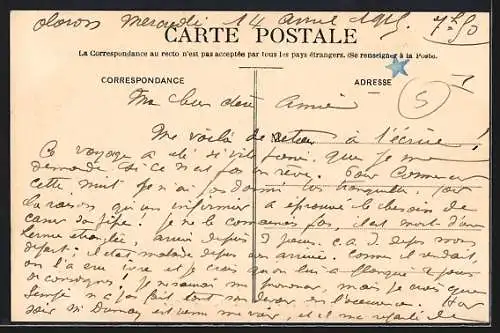 oloron Mercredi 14 avril 1915 7h50
CARTE POSTALE
La Correspondance au recto n'est pas acceptée par tous les pays étrangers. (Se renseigner à la Poste.
CORRESPONDANCE
ADRESSE
5
Ma bien chère Aimée
Me voilà de retour à l'écurie !
Ce voyage a été si vite fini, que je me
demande si ce n'est pas un rêve. Pour commencer
cette nuit je n'ai pas dormi très tranquille, pour
la raison qu'un infirmier a éprouvé le besoin de
casser sa pipe ! Je ne le connaissais pas, il est mort d'une
hernie étranglée, arrivé depuis 2 jours. c.a.d. depuis mon
départ ; il était malade depuis son arrivée. Comme il rendait,
on l'a cru ivre et je crois qu'on lui a flanqué 2 jours
de consigne ! Je ne saurais me prononcer, mais je crois que
Sergé n'a pas fait tout son devoir en l'occurence. Hier
soir Mr Dumay est venu me voir, et il me